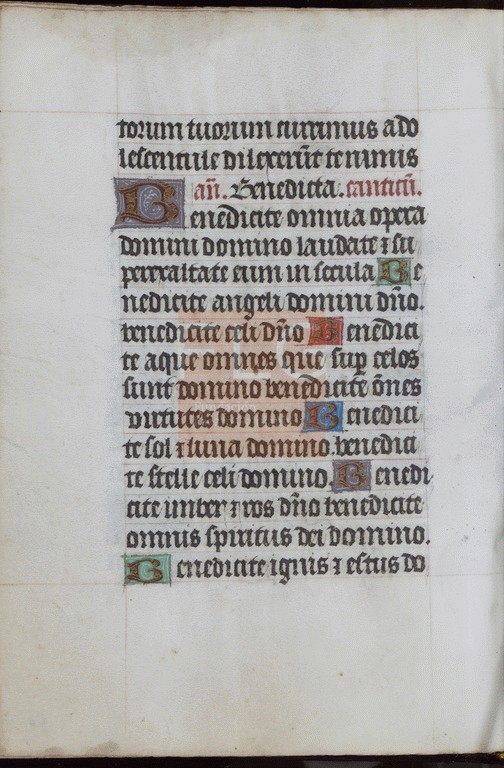 torum tuorum currimus ado
lescentule dilexerūt te nimis
an̄. Benedicta. canticū.
Benedicite omnia opera
domini domino laudate ⁊ su
perexaltate eum in secula Be
nedicite angeli domini dn̄o.
benedicite celi dn̄o Benedici
te aque omnes que sup̄ celos
sunt domino benedicite om̄es
virtutes domino Benedici
te sol ⁊ luna domino. benedici
te stelle celi domino. Benedi
cite imber ⁊ ros dn̄o benedicite
omnis spiritus dei domino.
Benedicite ignis ⁊ estus do